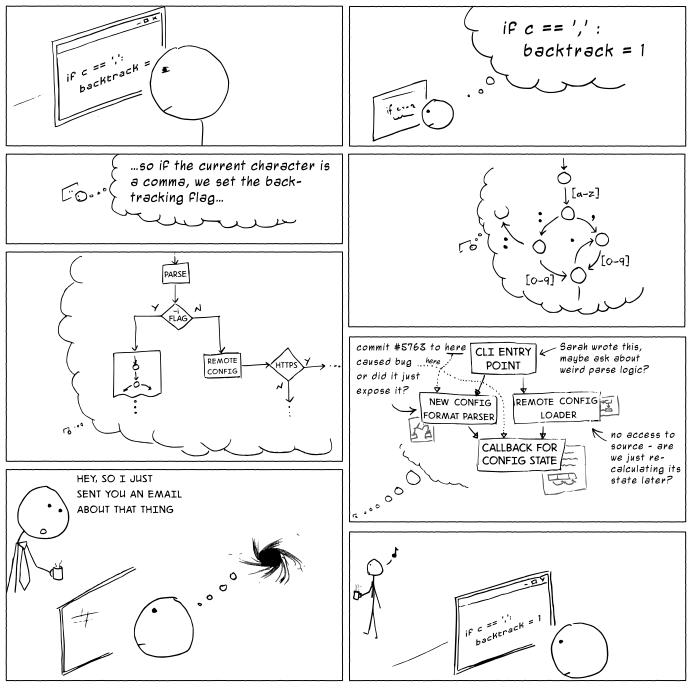 if c == ',':
backtrack =
if c == ',':
backtrack = 1
if c==','
...so if the current character is
a comma, we set the back-
tracking flag...
[a-z]
:
,
:
.
[0-9]
[0-9]
PARSE
Y
-i
FLAG
N
REMOTE
CONFIG
HTTPS
Y
N
commit #5763 to here
caused bug here
or did it just
expose it?
CLI ENTRY
POINT
Sarah wrote this,
maybe ask about
weird parse logic?
NEW CONFIG
FORMAT PARSER
REMOTE CONFIG
LOADER
CALLBACK FOR
CONFIG STATE
no access to
source - are
we just re-
calculating its
state later?
HEY, SO I JUST
SENT YOU AN EMAIL
ABOUT THAT THING
if c == ',':
backtrack = 1